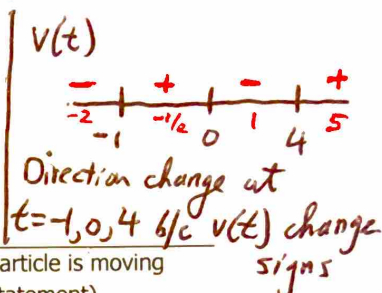 v(t)
- + - +
-2 -1/2 1 5
-1 0 4
Direction change at
t=-1,0,4 b/c v(t) change
signs
article is moving
tatement)